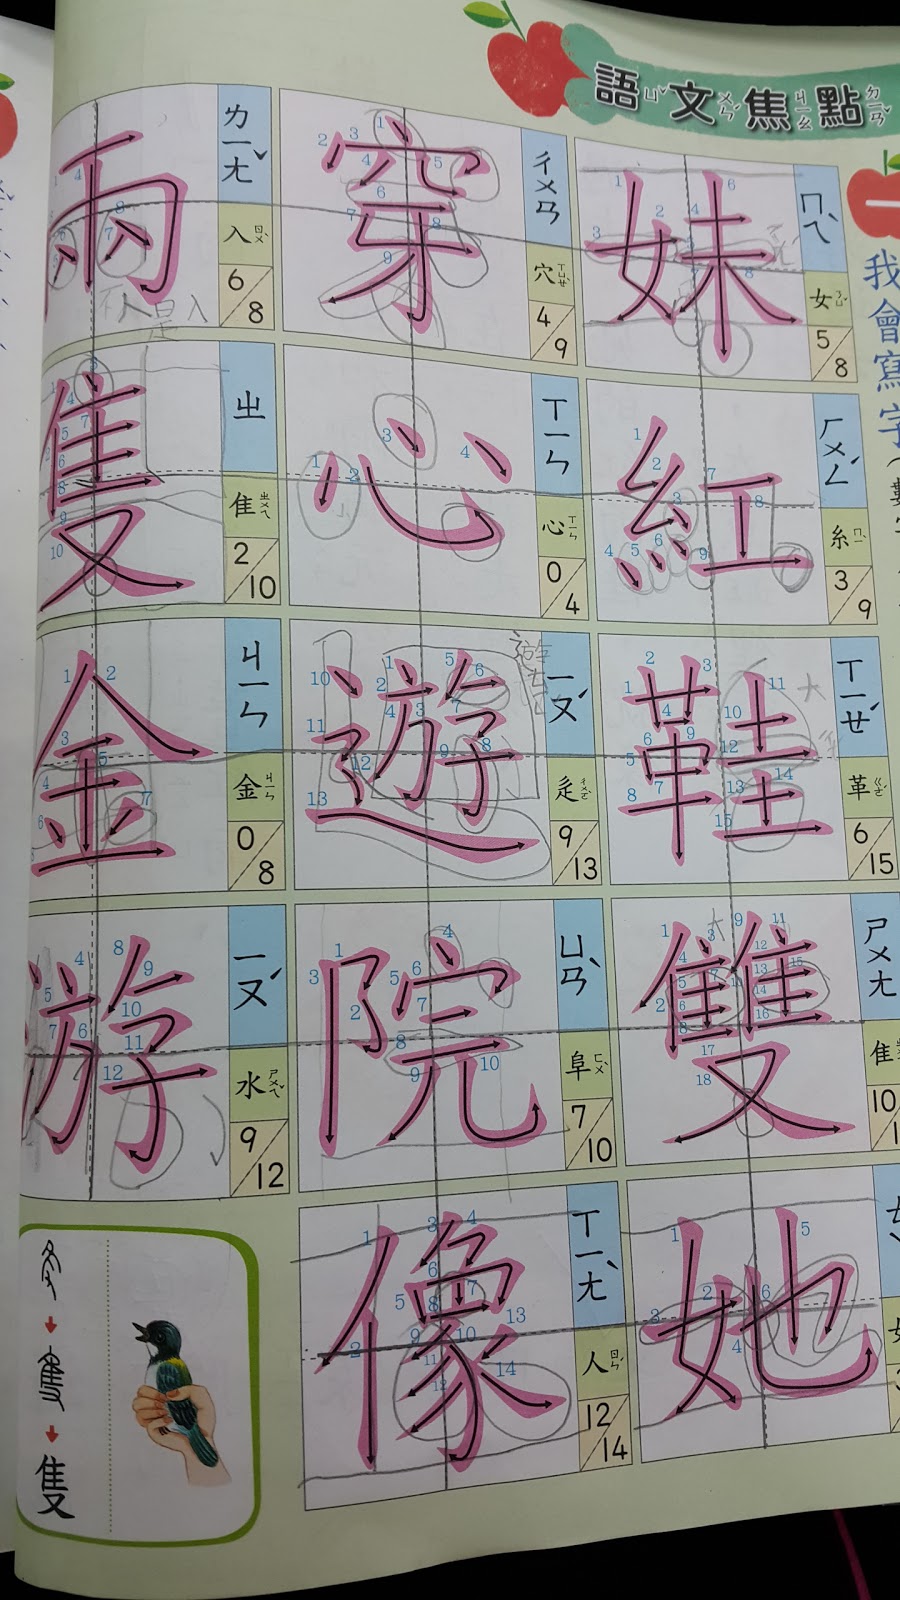 語ㄩˇ文ㄨㄣˊ焦ㄐㄧㄠ點ㄉㄧㄢˇ
一
我會寫字
妹 ㄇㄟˋ 女ㄋㄩˇ 5/8
紅 ㄏㄨㄥˊ 糸ㄇㄧˋ 3/9
鞋 ㄒㄧㄝˊ 革ㄍㄜˊ 6/15
雙 ㄕㄨㄤ 隹 10/1
她 ㄊㄚ
穿 ㄔㄨㄢ 穴ㄒㄩㄝˋ 4/9
心 ㄒㄧㄣ 心ㄒㄧㄣ 0/4
遊 ㄧㄡˊ 辵ㄔㄨㄛˋ 9/13
遊
院 ㄩㄢˋ 阜ㄈㄨˋ 7/10
像 ㄒㄧㄤˋ 人ㄖㄣˊ 12/14
兩 ㄌㄧㄤˇ 入ㄖㄨˋ 6/8
不人是入
隻 ㄓ 隹ㄓㄨㄟ 2/10
金 ㄐㄧㄣ 金ㄐㄧㄣ 0/8
游 ㄧㄡˊ 水ㄕㄨㄟˇ 9/12
隻